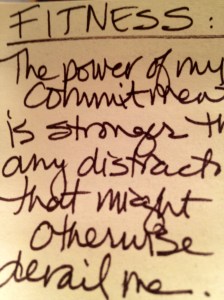 FITNESS:
The power of my
Commitmen
is stronger th
any distract
that might
otherwise
derail me.